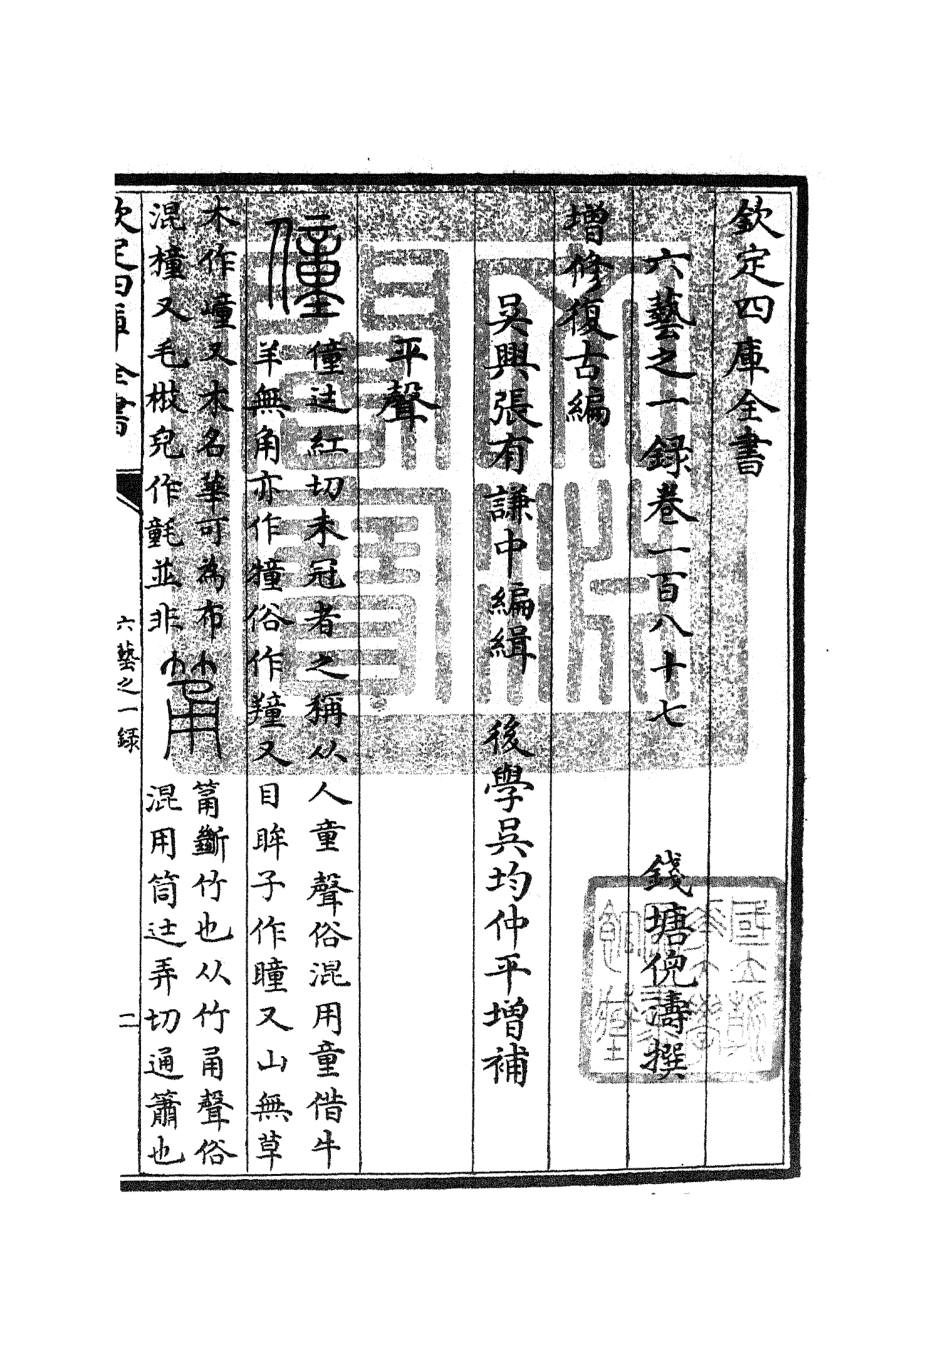 欽定四庫全書
六藝之一錄卷一百八十七
錢塘倪濤撰
增修復古編
吳興張有謙中編緝 後學吳均仲平增補
平聲
僮 僮𨑒紅切未冠者之稱从人童聲俗混用童借牛
羊無角亦作犝俗作羵又目眸子作瞳又山無草
木作㠉又木名華可為布
混橦又毛㪚皃作氃並非
筩 筩斷竹也从竹甬聲俗
混用筒𨑒弄切通簫也
欽定四庫全書
六藝之一錄
二